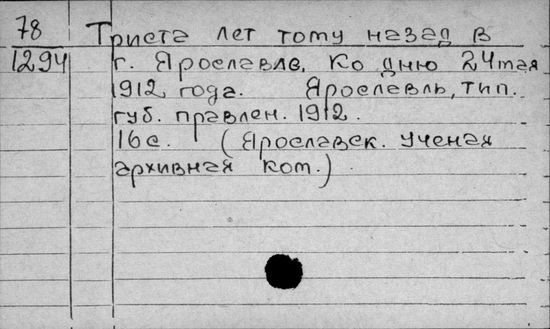 78 Триста лет тому назад в
1294 г. Ярославле. Ко дню 24 мая
1912 года. Ярославль, тип.
губ. правлен. 1912.
16 с. (Ярославск. ученая
архивная ком.)